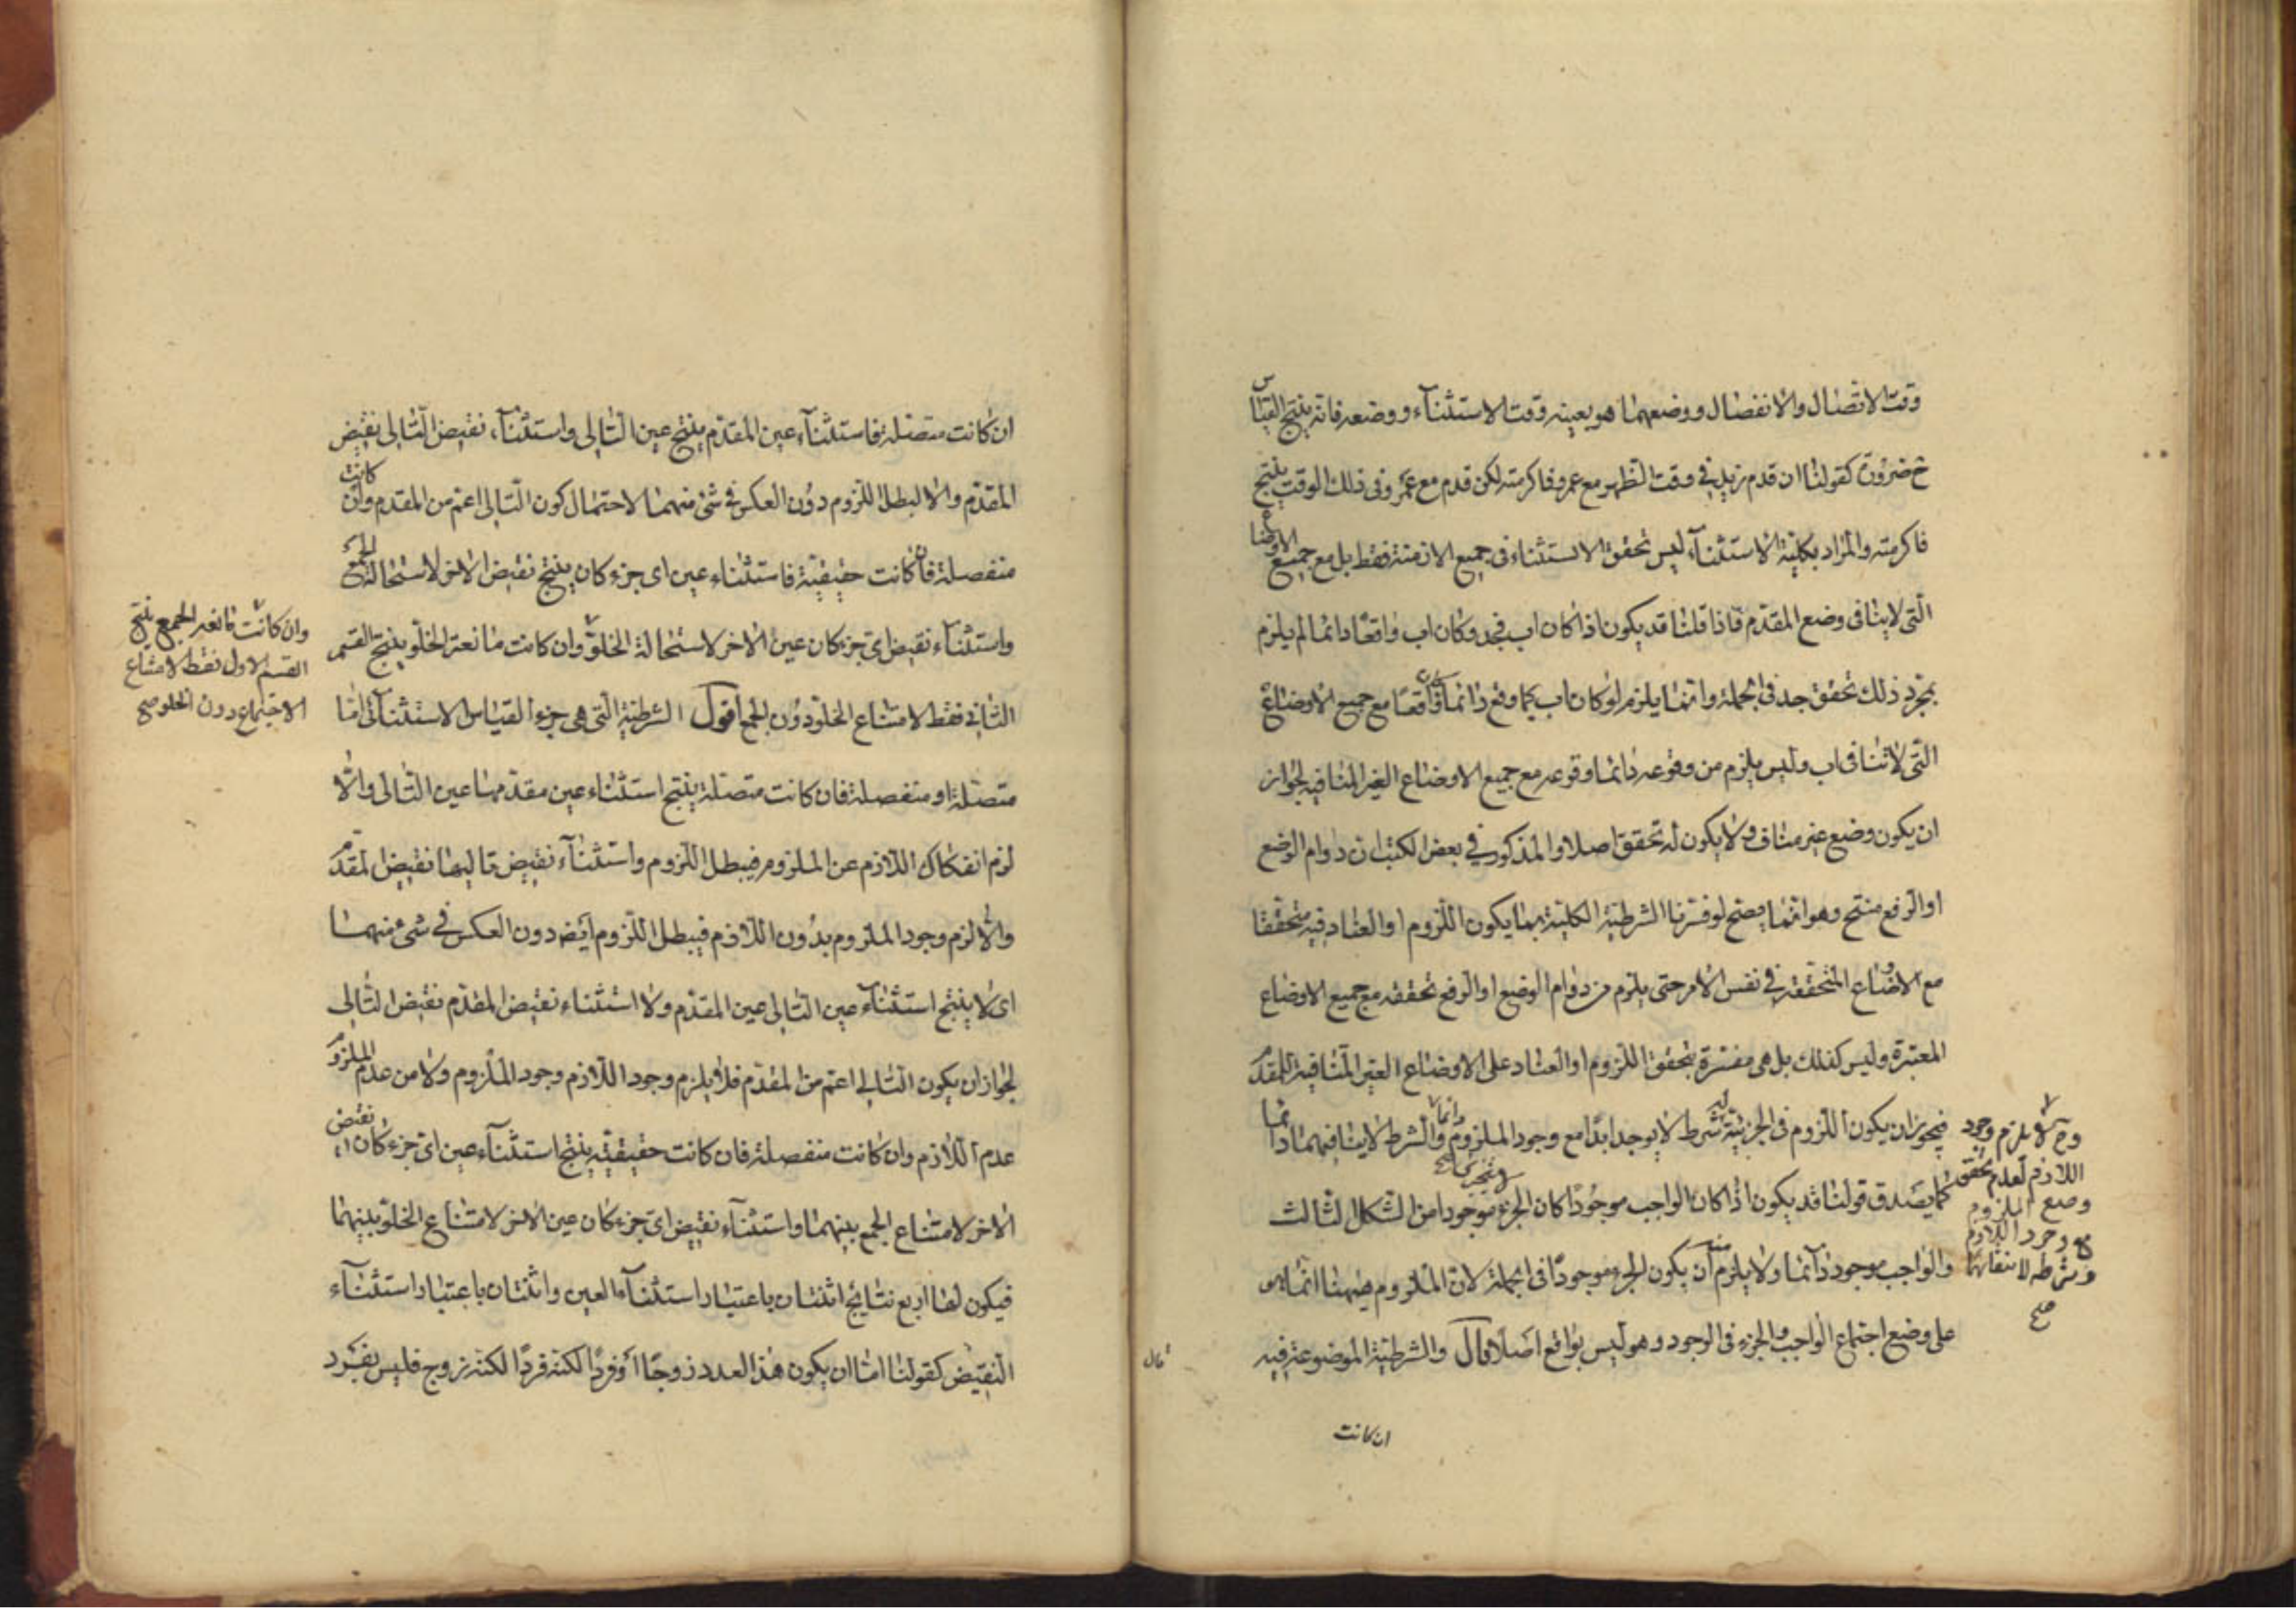 وقت الاتصال والانفصال ووضعهما هو بعينه وقت الاستثناء ووضعه فانه ينتج القياس
ح ضرورة كقولنا ان قدم زيد في وقت الظهر مع عمرو فاكرمته لكن قدم مع عمرو في ذلك الوقت ينتج
فاكرمته والمراد بكلية الاستثناء ليس تحقق الاستثناء فى جميع الازمنة فقط بل مع جميع الاوضاع
التى لا ينافى وضع المقدم فاذا قلنا قد يكون اذا كان اب فجد وكان اب واقعا دائما لم يلزم
بمجرد ذلك تحقق جد فى الجملة وانما يلزم لو كان اب كما وقع دائما كان واقعا مع جميع الاوضاع
التى لا تنافى اب وليس يلزم من وقوعه دائما وقوعه مع جميع الاوضاع الغير المنافيه لجواز
ان يكون وضع غير مناف ولا يكون له تحقق اصلا والمذكور في بعض الكتب ان دوام الوضع
او الرفع منتج وهو انما يصح لو فسرنا الشرطية الكلية بما يكون اللزوم او العناد فيه متحققا
مع الاوضاع المتحققه في نفس الامر حتى يلزم من دوام الوضع او الرفع تحققه مع جميع الاوضاع
المعتبرة وليس كذلك بل هى مفسرة بتحقق اللزوم او العناد على الاوضاع الغير المنافية للمقدم
فيجوز ان يكون اللزوم فى الجزئية له شرط لا يوجد ابدا مع وجود الملزوم دائما والشرط لا ينافيهما دائما
وح لا يلزم وجود
اللازم لعدم تحقق
وضع الملزوم
مع وجود اللازم
وشرطه لانتفائهما
صح
كما يصدق قولنا قد يكون اذا كان الواجب موجودا كان الجزء موجودا من الشكل الثالث
والواجب موجود دائما ولا يلزم منه ان يكون الجزء موجودا فى الجملة لان الملزوم ههنا انما هو
على وضع اجتماع الواجب والجزء فى الوجود وهو ليس بواقع اصلا قال والشرطية الموضوعة فيه
ان كانت
قال
ان كانت متصلة فاستثناء عين المقدم ينتج عين التالى واستثناء نقيض التالى نقيض
المقدم والا لبطل اللزوم دون العكس فى شئ منهما لاحتمال كون التالى اعم من المقدم وان كانت
منفصلة فان كانت حقيقية فاستثناء عين اى جزء كان ينتج نقيض الاخر لاستحالة الجمع
واستثناء نقيض اى جزء كان عين الاخر لاستحالة الخلو وان كانت مانعة الخلو ينتج القسم
وان كانت مانعة الجمع ينتج
القسم الاول فقط لامتناع
الاجتماع دون الخلو صح
الثانى فقط لامتناع الخلو دون الجمع اقول الشرطية التى هى جزء القياس الاستثنائى اما
متصلة او منفصلة فان كانت متصلة ينتج استثناء عين مقدمها عين التالى والا
لزم انفكاك اللازم عن الملزوم فيبطل اللزوم واستثناء نقيض تاليها نقيض المقدم
والا لزم وجود الملزوم بدون اللازم فيبطل اللزوم ايضا دون العكس فى شئ منهما
اى لا ينتج استثناء عين التالى عين المقدم ولا استثناء نقيض المقدم نقيض التالى
لجواز ان يكون التالى اعم من المقدم فلا يلزم وجود اللازم وجود الملزوم ولا من عدم الملزوم
عدم اللازم وان كانت منفصلة فان كانت حقيقية ينتج استثناء عين اى جزء كان نقيض
الاخر لامتناع الجمع بينهما واستثناء نقيض اى جزء كان عين الاخر لامتناع الخلو بينهما
فيكون لها اربع نتائج اثنتان باعتبار استثناء العين واثنتان باعتبار استثناء
النقيض كقولنا اما ان يكون هذا العدد زوجا او فردا لكنه فردا لكنه زوج فليس بفرد